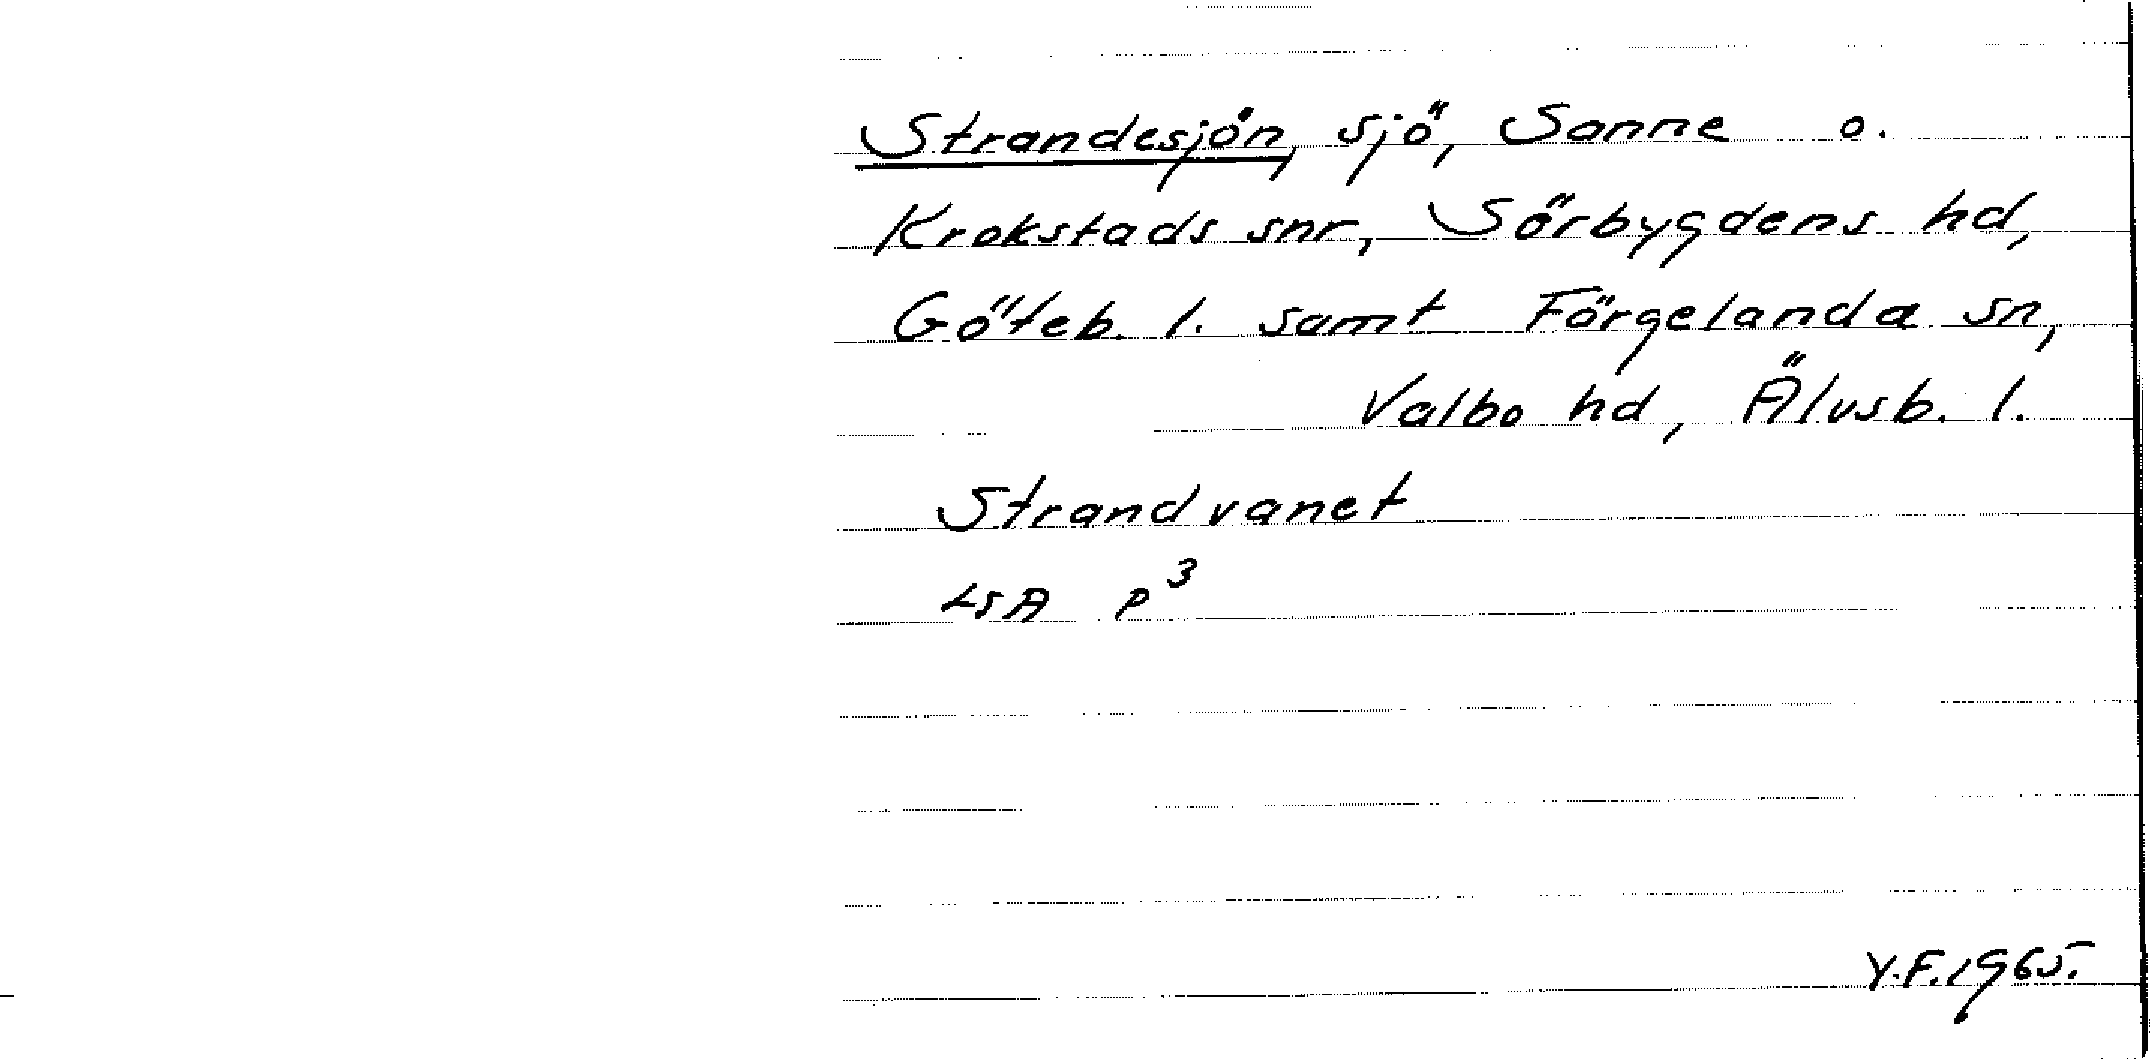 Strandesjön, sjö, Sanne o.
Krokstads snr, Sörbygdens hd,
Göteb. l. samt Färgelanda sn,
Valbo hd, Älvsb. l.
Strandvanet
LSA P³
Y.F.1965.